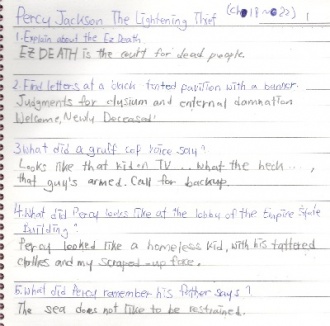 Percy Jackson The Lightening Thief (ch 18 ~ 22) 1
1. Explain about the Ez Death.
EZ DEATH is the for dead people.
2. Find letters at a black-tinted pavilion with a banner.
Judgments for elysium and enternal damnation
Welcome, Newly Deceased!
3. What did a gruff cop voice say?
Looks like that kid on TV .. what the heck...,
that guy's armed. Call for backup.
4. What did Percy looks like at the lobby of the Empire State
Building?
Percy looked like a homeless kid, with his tattered
clothes and my scraped-up face.
5. What did Percy remember his father says?
The sea does not like to be restrained.